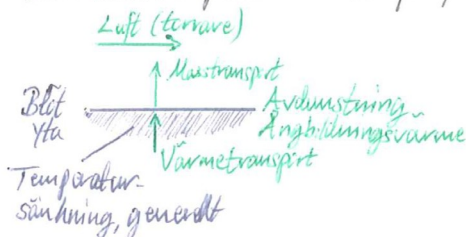 Luft (torrare)
Masstransport
Blöt
yta
Avdunstning
Ångbildningsvärme
Värmetransport
Temperatur-
sänkning, generellt